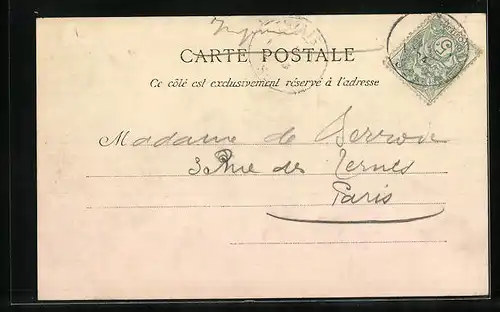 CARTE POSTALE
Ce côté est exclusivement réservé à l'adresse
Madame de
Rue des Ternes
Paris